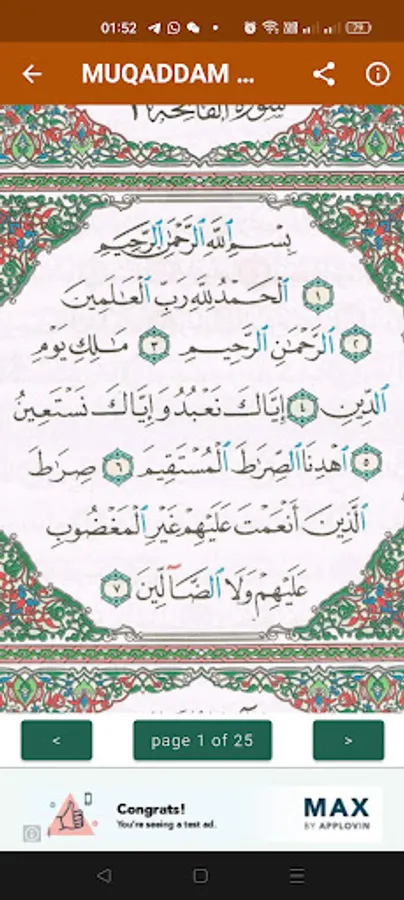 01:52
79
MUQADDAM ...
سورة الفاتحة
بِسْمِ ٱللَّهِ ٱلرَّحْمَٰنِ ٱلرَّحِيمِ
١ ٱلْحَمْدُ لِلَّهِ رَبِّ ٱلْعَٰلَمِينَ
٢ ٱلرَّحْمَٰنِ ٱلرَّحِيمِ ٣ مَٰلِكِ يَوْمِ
ٱلدِّينِ ٤ إِيَّاكَ نَعْبُدُ وَإِيَّاكَ نَسْتَعِينُ
٥ ٱهْدِنَا ٱلصِّرَٰطَ ٱلْمُسْتَقِيمَ ٦ صِرَٰطَ
ٱلَّذِينَ أَنْعَمْتَ عَلَيْهِمْ غَيْرِ ٱلْمَغْضُوبِ
عَلَيْهِمْ وَلَا ٱلضَّآلِّينَ ٧
< page 1 of 25 >
Congrats!
You're seeing a test ad.
MAX
BY APPLOVIN